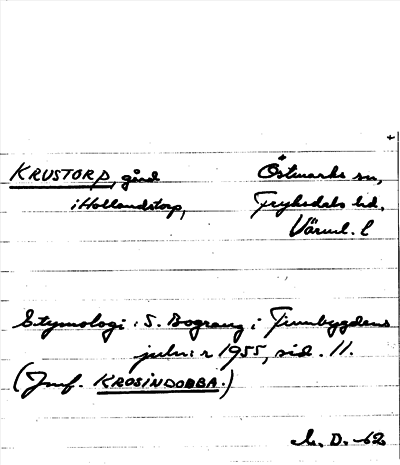 KRUSTORP, gård
i Hollandstorp,
Östmarks sn,
Fryksdals hd,
Värml. l
Etymologi: S. Bograng i Finnbygdens
julnr 1955, sid. 11.
(Jmf. KROSINDOBBA.)
D. -62